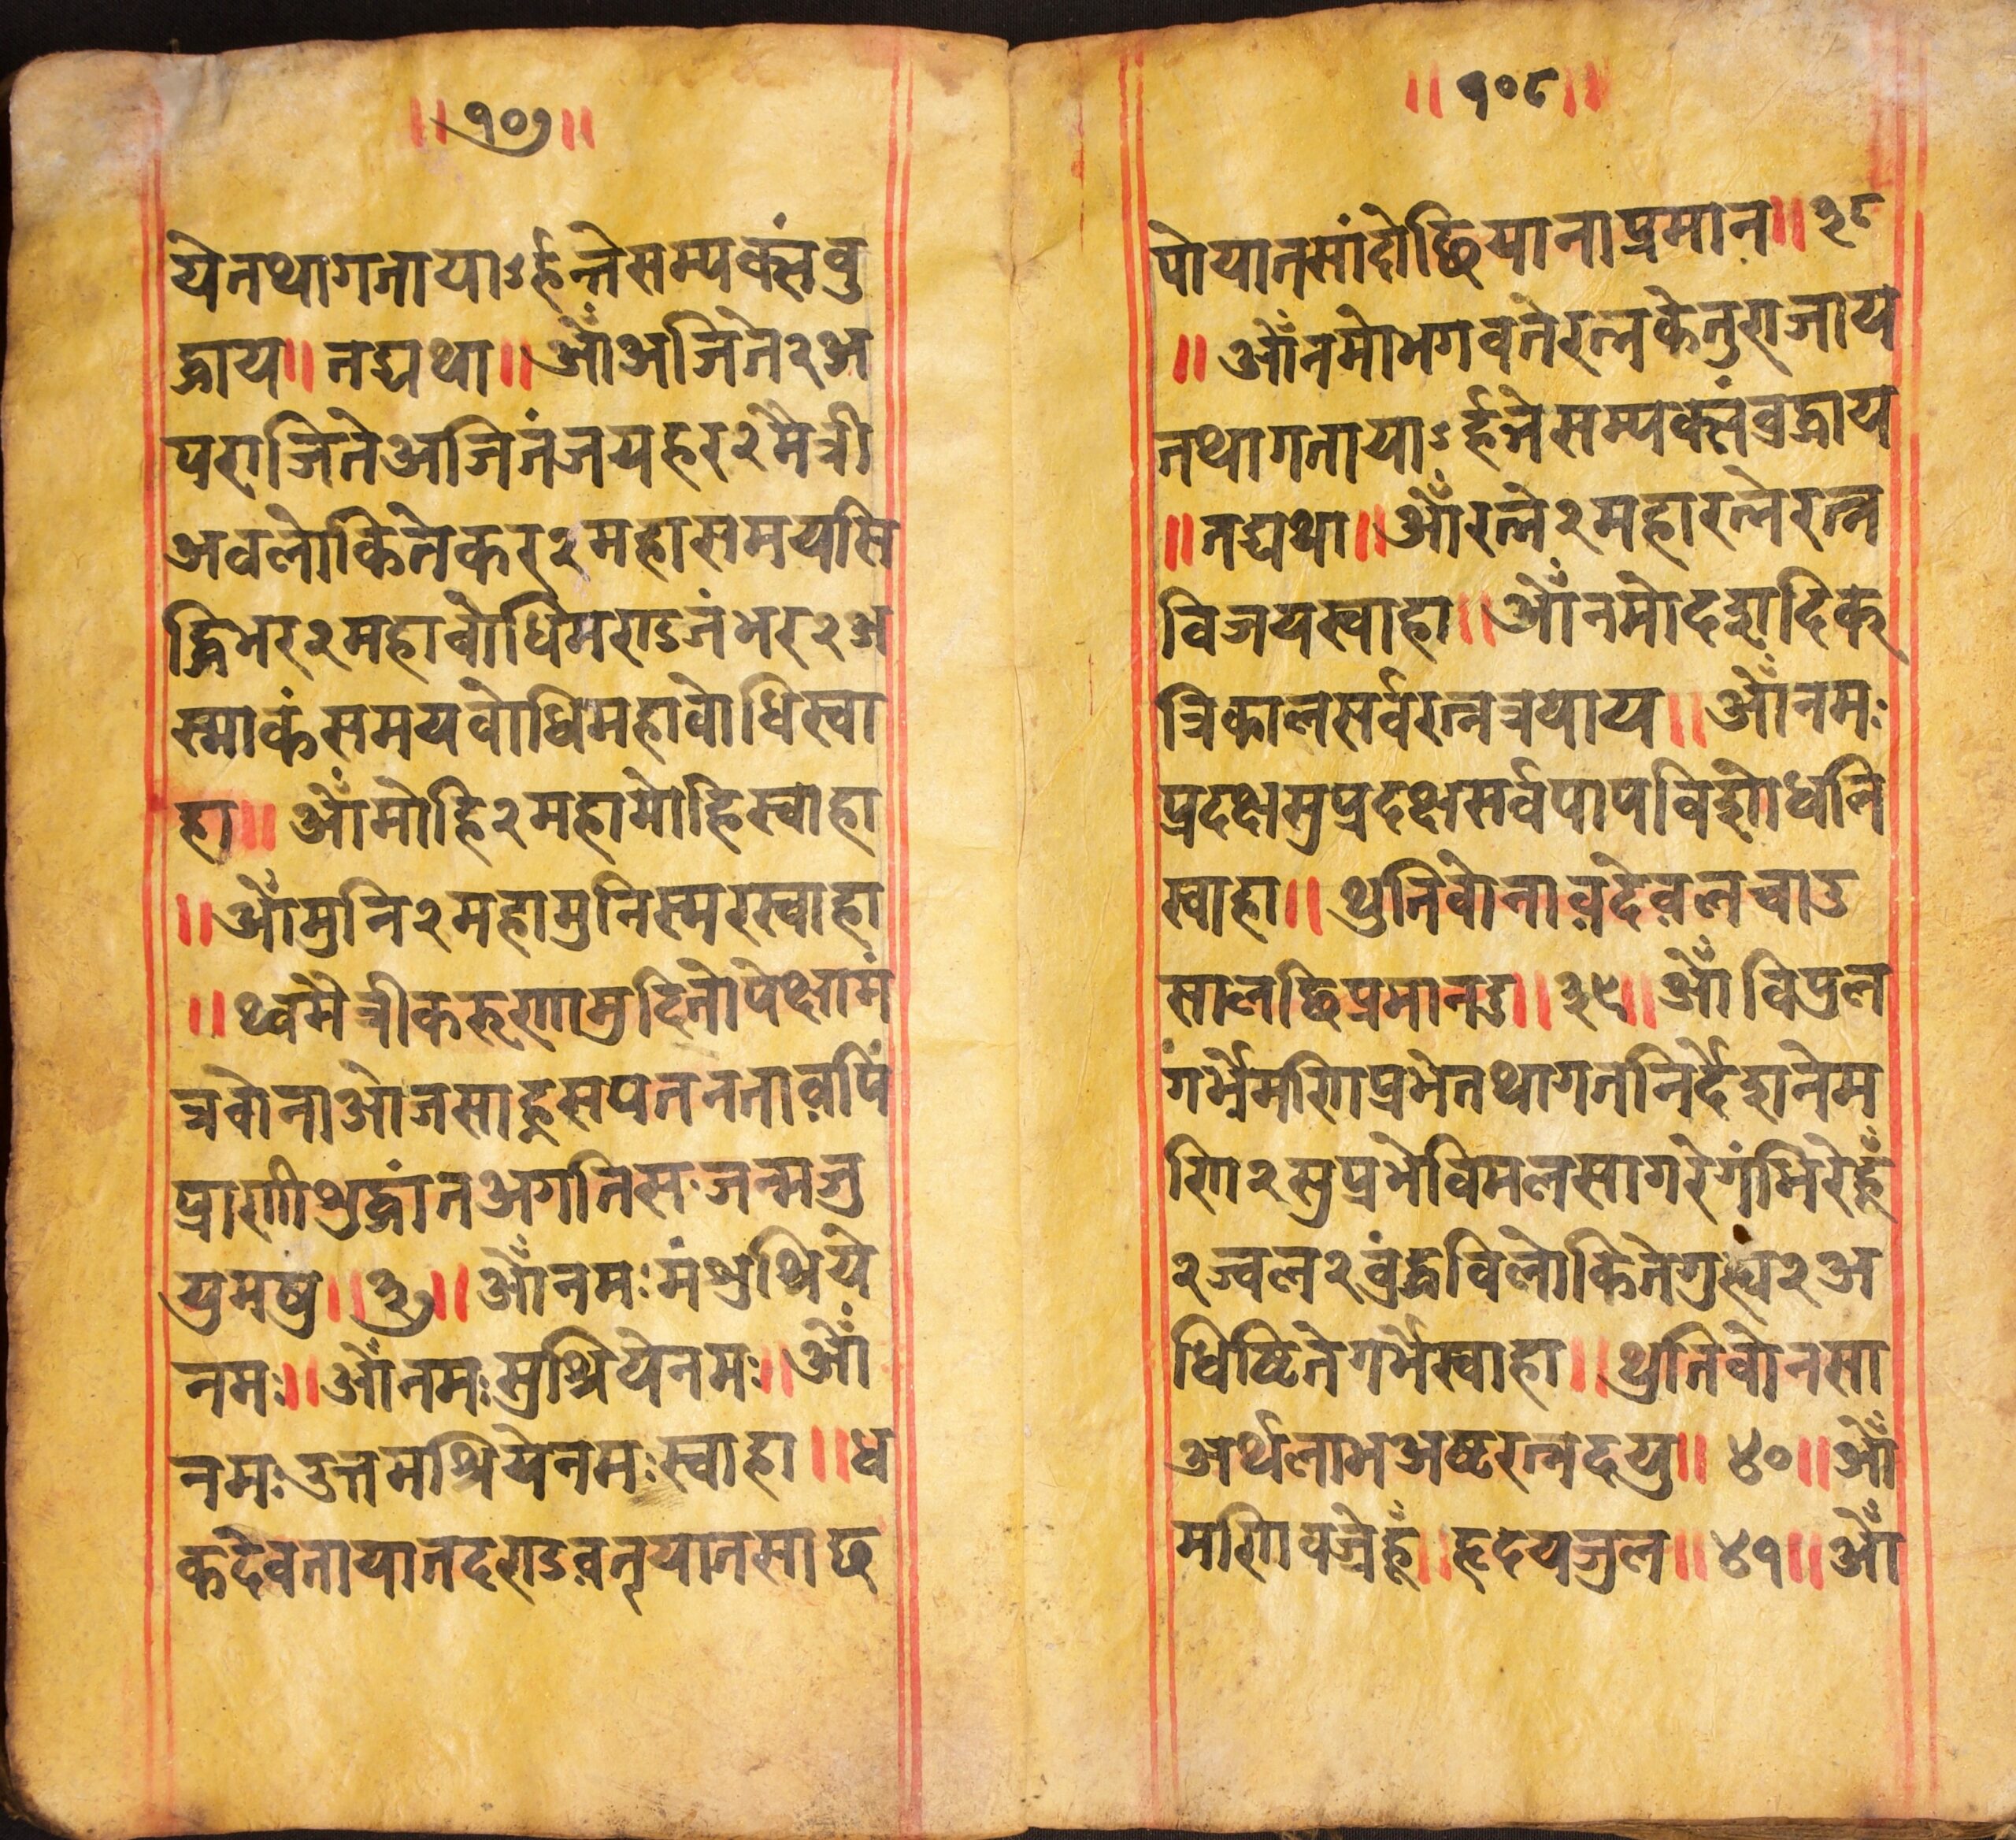 ॥१०७॥
येतथागतायाऽर्हन्तेसम्यक्संवु
द्धाय॥तद्यथा॥ओँअजिते२अ
पराजितेअजितंजयहर२मैत्री
अवलोकितेकर२महासमयसि
द्धिभर२महावोधिमराऽजंभर२अ
स्माकंसमयवोधिमहावोधिस्वा
हा॥ओँमोहि२महामोहिस्वाहा
॥ओँमुनि२महामुनिस्मरस्वाहा
॥थ्वमैत्रीकरूणामुदितोपेक्षामं
त्रवोनाओजसाहूसपतननावपिं
प्राणीशुद्धांनअगतिसःजन्मजु
युमषु॥३७॥ओँनमःमंश्रुश्रिये
नमः॥ओँनमःसुश्रियेनमः॥ओँ
नमःउत्तमश्रियेनमःस्वाहा॥ध
कदेवतायातदराऽवनृयातसाछ
॥१०८॥
पोयातसांदोछियानाप्रमान॥३८
॥ओँनमोभगवतेरत्नकेतुराजाय
तथागतायाऽर्हत्तेसम्यक्संवुद्धाय
॥तद्यथा॥ओँरत्ने२महारत्नेरत्न
विजयस्वाहा॥ओँनमोदशदिक्
त्रिकालसर्वरत्नत्रयाय॥ओँनमः
प्रदक्षसुप्रदक्षसर्वपापविशोधनि
स्वाहा॥थुतिवोनावदेवलचाउ
सालछिप्रमानउ॥३९॥ओँविपुल
गंर्भेमणिप्रभेतथागतनिर्देशनेम
णि२सुप्रभेविमलसागरेगंभिरेहूँ
२ज्वल२वुंद्धविलोकितेगुह्यं२अ
धिष्टितेगर्भेस्वाहा॥थुतिवोनसा
अर्थलाभअष्टरत्नदयु॥४०॥ओँ
मणिवज्रेहूँ॥हृदयजुल॥४१॥ओँ